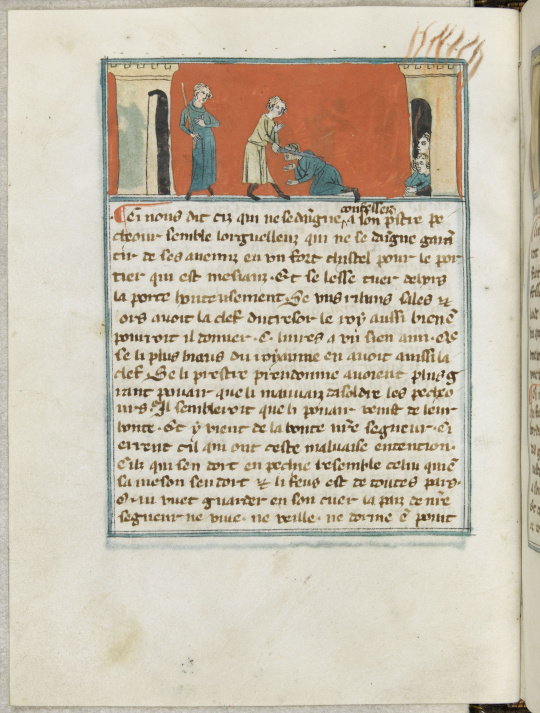 Ci nous dit ciz qui ne se daigne a son prstre pe
confesser
cheour semble lorguelleuz qui ne se daigne garā
tir de ses anemis en un fort chastel pour le por
tier qui est mesiaus. Et se lesse tuer dehors
la porte honteusement. Se uns ribaus files et
ors auoit la clef du tresor le roy aussi bien ē
pourroit il donner .C. liures a un sien ami. Cōe
se li plus biaus du royaume en auoit aussi la
clef. Se li prestre preudomme auoient plus g
rant pouair que li mauuaiz dasoldre les pecheo
urs. Il sembleroit que li pouair venist de leur
bonte. Et il vient de la bonte nr̄e segneur. Ci
errent cil qui ont ceste maluaise entention.
Cilz qui sen dort en pechie resemble celui qui ē
sa meson sendort et li feus est de toutes pars.
Qui vuet guarder en son cuer la paiz de nr̄e
segneur ne viue. ne veille. ne dorme ē point